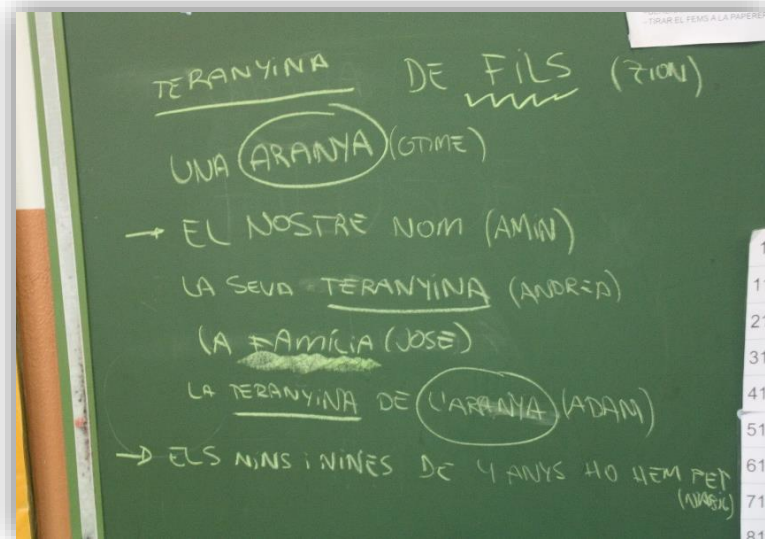 - TIRAR EL FEMS A LA PAPERER
TERANYINA DE FILS (ZION)
UNA ARANYA
→ EL NOSTRE NOM (AMIN)
LA SEVA TERANYINA (ANDREA)
LA FAMÍLIA (JOSE)
LA TERANYINA DE L'ARANYA (ADAM)
→ ELS NINS i NINES DE 4 ANYS HO HEM FET
1
11
21
31
41
51
61
71
81